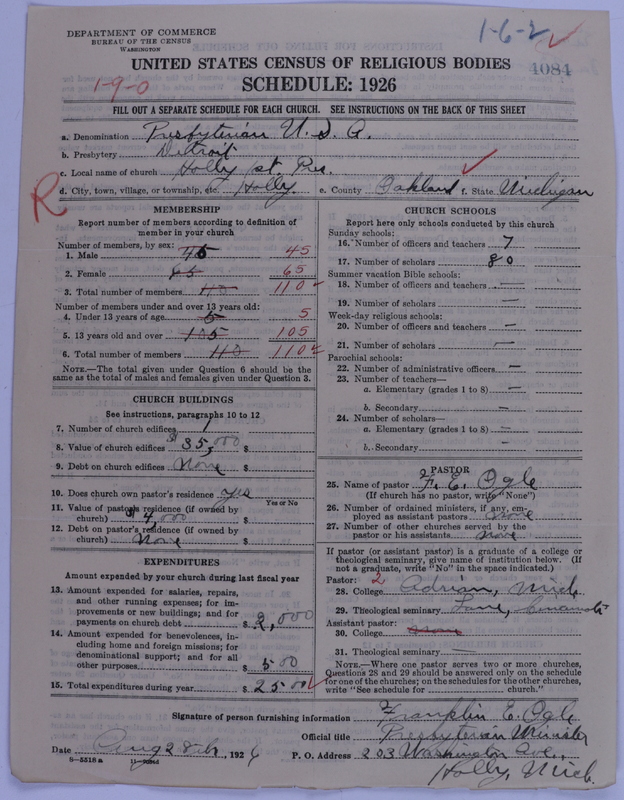 DEPARTMENT OF COMMERCE
BUREAU OF THE CENSUS
WASHINGTON
1-6-2
4084
UNITED STATES CENSUS OF RELIGIOUS BODIES
SCHEDULE: 1926
1-9-0
FILL OUT A SEPARATE SCHEDULE FOR EACH CHURCH. SEE INSTRUCTIONS ON THE BACK OF THIS SHEET
a. Denomination Presbyterian U. S. A.
b. Presbytery Detroit
c. Local name of church Holly 1st. Pres.
d. City, town, village, or township, etc. Holly e. County Oakland f. State Michigan
R
MEMBERSHIP
Report number of members according to definition of
member in your church
Number of members, by sex:
1. Male 45 45
2. Female 65 65
3. Total number of members 110 110
Number of members under and over 13 years old:
4. Under 13 years of age 5 5
5. 13 years old and over 105 105
6. Total number of members 110 110
NOTE.—The total given under Question 6 should be
same as the total of males and females given under Question 3.
CHURCH BUILDINGS
See instructions, paragraphs 10 to 12
7. Number of church edifices 1
8. Value of church edifices $35,000 $
9. Debt on church edifices None $
10. Does church own pastor's residence yes
Yes or No
11. Value of pastor's residence (if owned by
church) $4,000 $
12. Debt on pastor's residence (if owned by
church) None $
EXPENDITURES
Amount expended by your church during last fiscal year
13. Amount expended for salaries, repairs,
and other running expenses; for im-
provements or new buildings; and for
payments on church debt $ 2,000
14. Amount expended for benevolences, in-
cluding home and foreign missions; for
denominational support; and for all
other purposes $ 500
15. Total expenditures during year $ 2500
CHURCH SCHOOLS
Report here only schools conducted by this church
Sunday schools:
16. Number of officers and teachers 7
17. Number of scholars 80
Summer vacation Bible schools:
18. Number of officers and teachers —
19. Number of scholars —
Week-day religious schools:
20. Number of officers and teachers —
21. Number of scholars —
Parochial schools:
22. Number of administrative officers —
23. Number of teachers—
a. Elementary (grades 1 to 8) —
b. Secondary —
24. Number of scholars—
a. Elementary (grades 1 to 8) —
b. Secondary —
PASTOR
25. Name of pastor F. E. Ogle
(If church has no pastor, write "None")
26. Number of ordained ministers, if any, em-
ployed as assistant pastors None
27. Number of other churches served by the
pastor or his assistants None
If pastor (or assistant pastor) is a graduate of a college or
theological seminary, give name of institution below. (If
not a graduate, write "No" in the space indicated.)
Pastor: 2
28. College Adrian, Mich.
29. Theological seminary Lane, Cincinnati
Assistant pastor:
30. College None
31. Theological seminary —
NOTE.—Where one pastor serves two or more churches,
Questions 28 and 29 should be answered only on the schedule
for one of the churches; on the schedules for the other churches,
write "See schedule for church."
Signature of person furnishing information Franklin E. Ogle
Official title Presbyterian Minister
Date Aug 28th, 1926 P. O. Address 203 Washington Ave.,
Holly, Mich.
8—5518 a